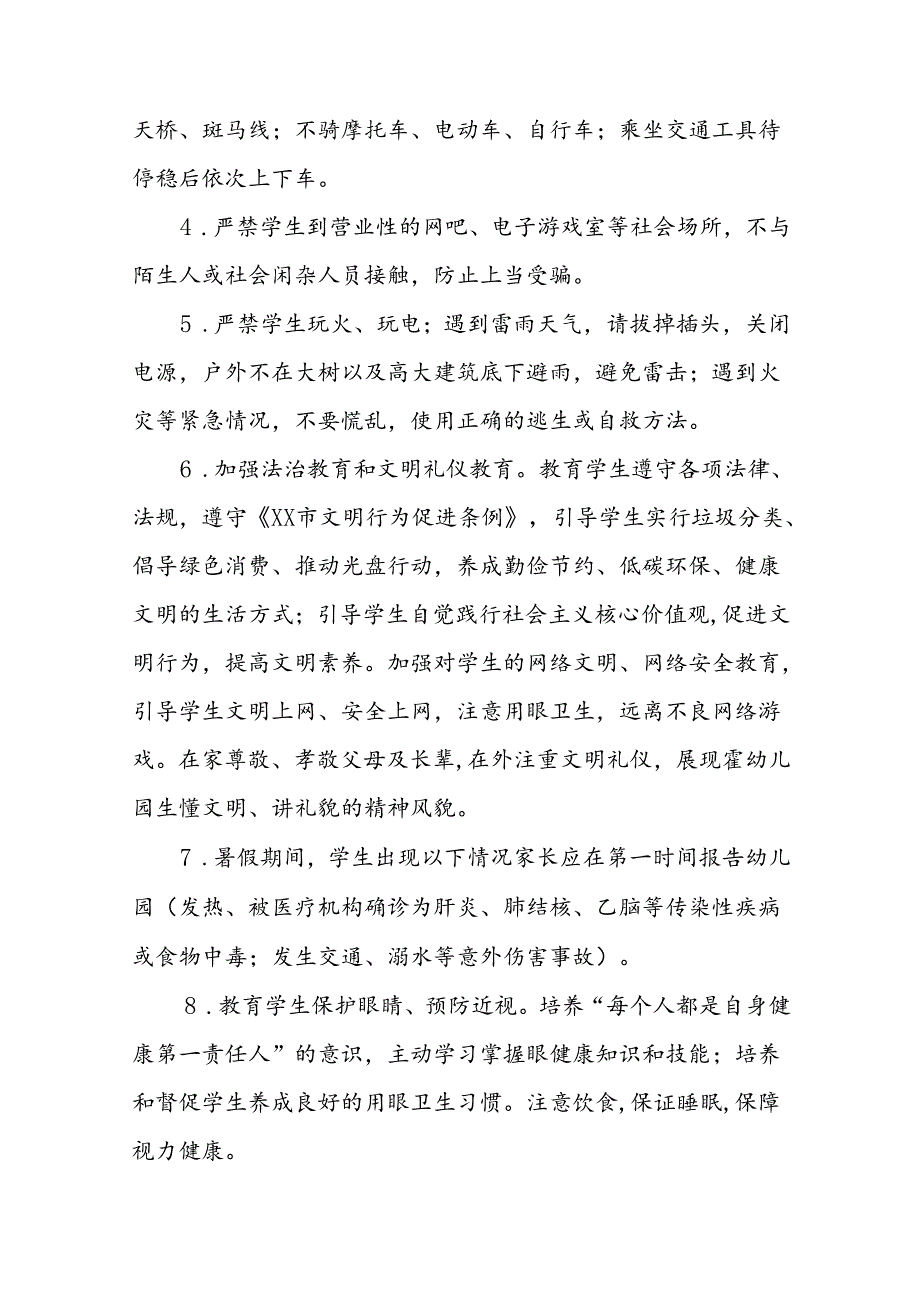 天桥、斑马线；不骑摩托车、电动车、自行车；乘坐交通工具待
停稳后依次上下车。
4.严禁学生到营业性的网吧、电子游戏室等社会场所，不与
陌生人或社会闲杂人员接触，防止上当受骗。
5.严禁学生玩火、玩电；遇到雷雨天气，请拔掉插头，关闭
电源，户外不在大树以及高大建筑底下避雨，避免雷击；遇到火
灾等紧急情况，不要慌乱，使用正确的逃生或自救方法。
6.加强法治教育和文明礼仪教育。教育学生遵守各项法律、
法规，遵守《XX市文明行为促进条例》，引导学生实行垃圾分类、
倡导绿色消费、推动光盘行动，养成勤俭节约、低碳环保、健康
文明的生活方式；引导学生自觉践行社会主义核心价值观,促进文
明行为，提高文明素养。加强对学生的网络文明、网络安全教育，
引导学生文明上网、安全上网，注意用眼卫生，远离不良网络游
戏。在家尊敬、孝敬父母及长辈,在外注重文明礼仪，展现霍幼儿
园生懂文明、讲礼貌的精神风貌。
7.暑假期间，学生出现以下情况家长应在第一时间报告幼儿
园（发热、被医疗机构确诊为肝炎、肺结核、乙脑等传染性疾病
或食物中毒；发生交通、溺水等意外伤害事故）。
8.教育学生保护眼睛、预防近视。培养“每个人都是自身健
康第一责任人”的意识，主动学习掌握眼健康知识和技能；培养
和督促学生养成良好的用眼卫生习惯。注意饮食,保证睡眠,保障
视力健康。